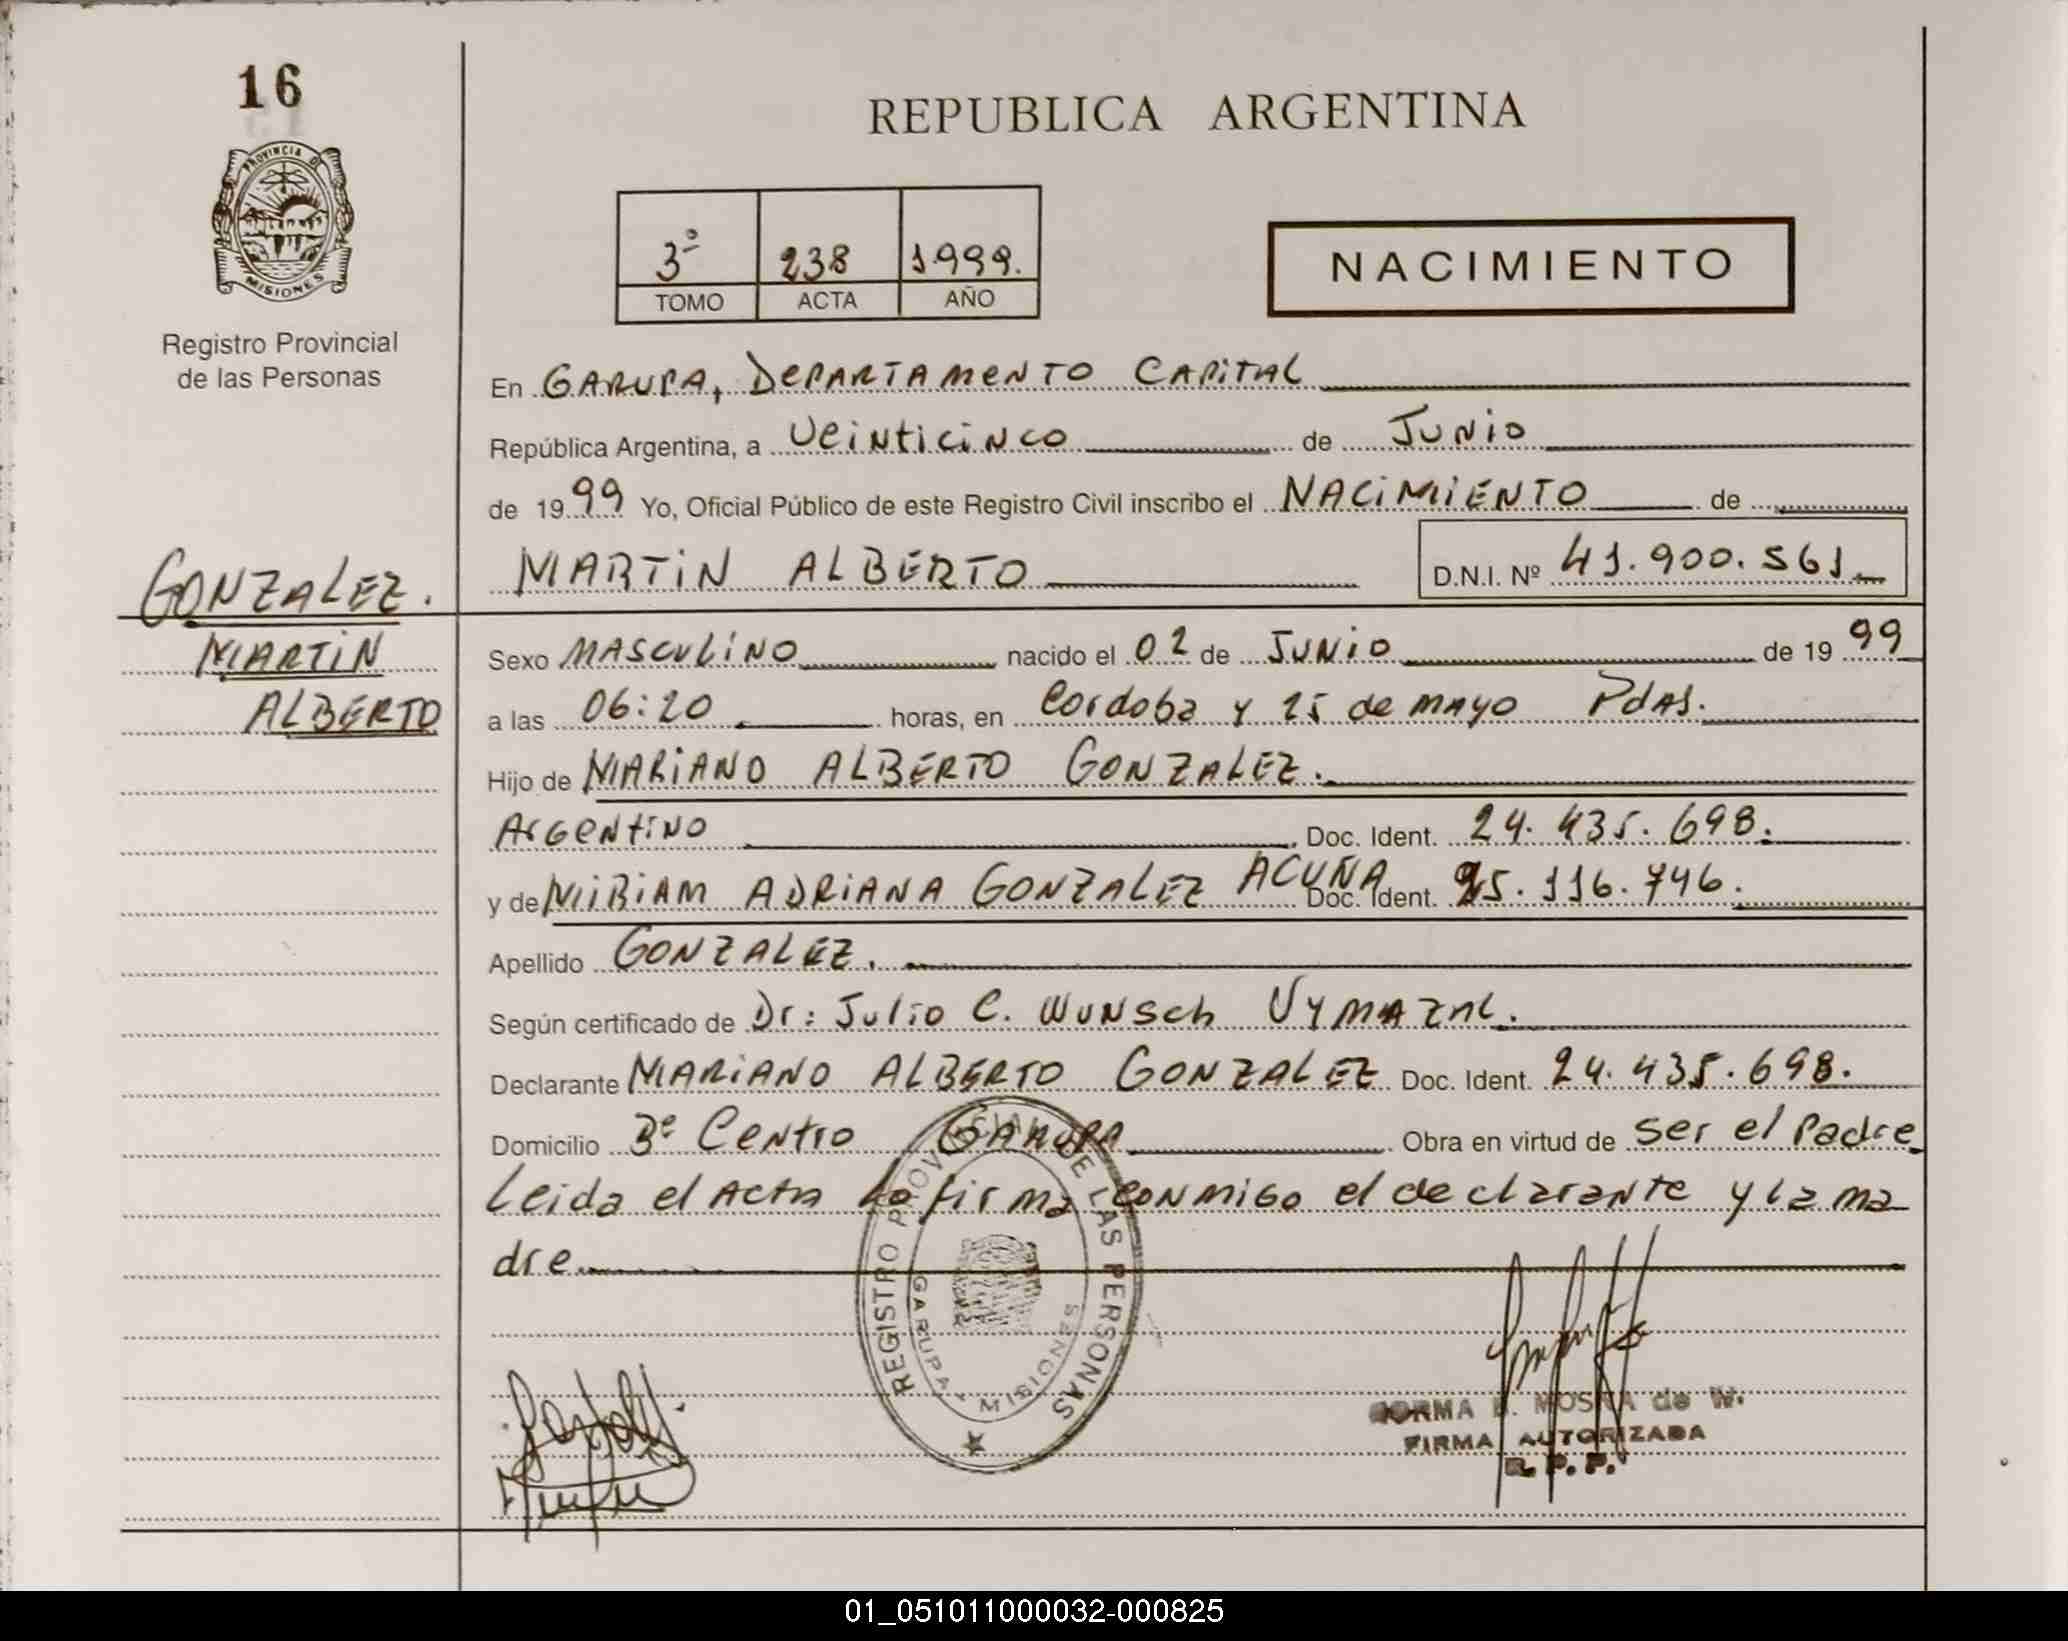 16
PROVINCIA DE
MISIONES
Registro Provincial
de las Personas
GONZALEZ.
MARTIN
ALBERTO
REPUBLICA ARGENTINA
3º 238 1.999.
TOMO ACTA AÑO
NACIMIENTO
En GARUPA, DEPARTAMENTO CAPITAL
República Argentina, a VEINTICINCO de JUNIO
de 1999 Yo, Oficial Público de este Registro Civil inscribo el NACIMIENTO de
MARTIN ALBERTO D.N.I. Nº 41.900.561
Sexo MASCULINO nacido el 02 de JUNIO de 1999
a las 06:20 horas, en Cordoba y 25 de mayo Pdas.
Hijo de MARIANO ALBERTO GONZALEZ.
Argentino Doc. Ident. 24.435.698.
y de MIRIAM ADRIANA GONZALEZ ACUÑA Doc. Ident. 25.116.746.
Apellido GONZALEZ.
Según certificado de Dr: Julio C. Wunsch Vymazal.
Declarante MARIANO ALBERTO GONZALEZ Doc. Ident. 24.435.698.
Domicilio 3º Centro GARUPA Obra en virtud de ser el Padre
Leida el Acta la firma conmigo el declarante y la ma
dre
REGISTRO PROVINCIAL DE LAS PERSONAS
GARUPA MISIONES
NORMA MOSKA de W.
FIRMA AUTORIZADA
R. P. P.
01_051011000032-000825